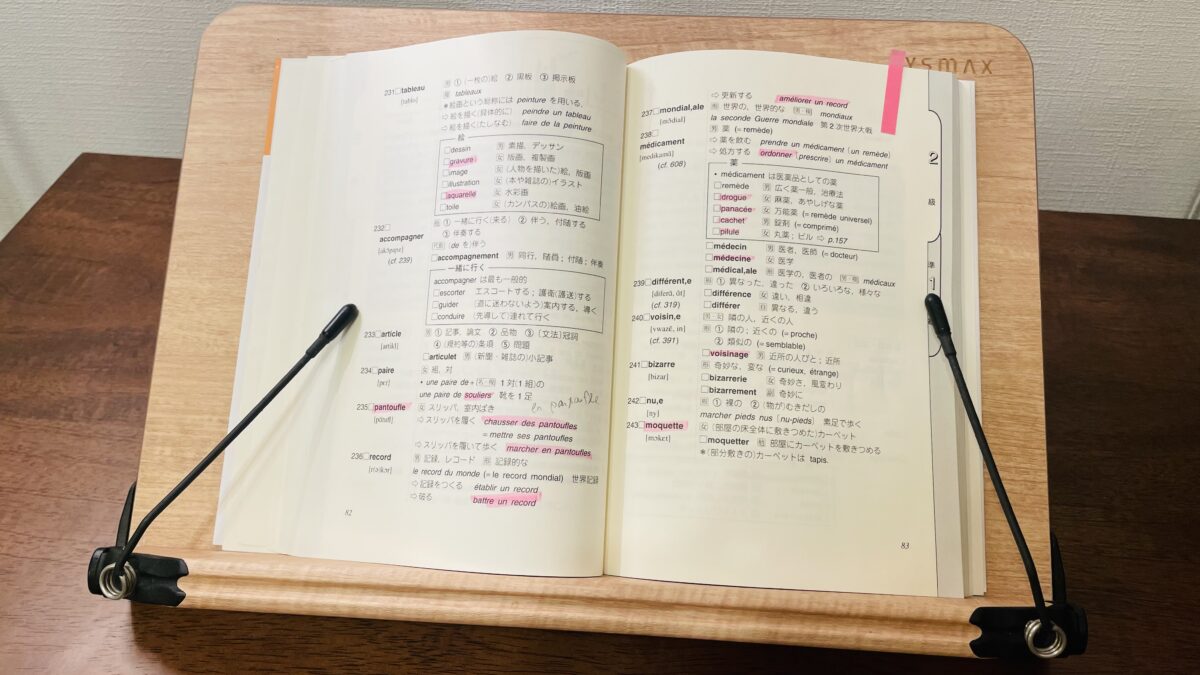 231□tableau 男 ① (一枚の)絵 ② 黒板 ③ 掲示板
[tablo] 複 tableaux
＊絵画という総称には peinture を用いる.
⇨ 絵を描く(具体的に) peindre un tableau
⇨ 絵を描く(たしなむ) faire de la peinture
絵
□dessin 男 素描, デッサン
□gravure 女 版画, 複製画
□image 女 (人物を描いた)絵, 版画
□illustration 女 (本や雑誌の)イラスト
□aquarelle 女 水彩画
□toile 女 (カンバスの)絵画, 油絵
232□ 他 ① 一緒に行く(来る) ② 伴う, 付随する
accompagner ③ 伴奏する
(cf. 239) 代動 (de を)伴う
□accompagnement 男 同行, 随員；付随；伴奏
一緒に行く
accompagner は最も一般的
□escorter エスコートする；護衛(護送)する
□guider (道に迷わないよう)案内する, 導く
□conduire (先導して)連れて行く
233□article 男 ① 記事, 論文 ② 品物 ③ [文法]冠詞
[artikl] ④ (規約等の)条項 ⑤ 問題
□articulet 男 (新聞・雑誌の)小記事
234□paire 女 組, 対
[pɛr] • une paire de＋(名・複) 1対(1組)の
une paire de souliers 靴を1足
235□pantoufle 女 スリッパ, 室内ばき en pantoufle
[pɑ̃tufl] ⇨スリッパを履く chausser des pantoufles
= mettre ses pantoufles
⇨スリッパを履いて歩く marcher en pantoufles
236□record 男 記録, レコード 形 記録的な
[r(ə)kɔr] le record du monde (= le record mondial) 世界記録
⇨記録をつくる établir un record
⇨破る battre un record
82
YSMAX
⇨ 更新する améliorer un record
237□mondial,ale 形 世界の, 世界的な (男・複) mondiaux
[mɔ̃djal] la seconde Guerre mondiale 第2次世界大戦
238□ 男 薬 (= remède)
médicament ⇨ 薬を飲む prendre un médicament (un remède)
[medikamɑ̃] ⇨ 処方する ordonner (prescrire) un médicament
(cf. 608)
薬
• médicament は医薬品としての薬
□remède 男 広く薬一般, 治療法
□drogue 女 麻薬, あやしげな薬
□panacée 女 万能薬 (= remède universel)
□cachet 男 錠剤 (= comprimé)
□pilule 女 丸薬；ピル ⇨ p.157
□médecin 男 医者, 医師 (= docteur)
□médecine 女 医学
□médical,ale 形 医学の, 医者の (男・複) médicaux
239□différent,e 形 ① 異なった, 違った ② いろいろな, 様々な
[diferɑ̃, ɑ̃t] □différence 女 違い, 相違
(cf. 319) □différer 自 異なる, 違う
240□voisin,e 男・女 隣の人, 近くの人
[vwazɛ̃, in] 形 ① 隣の；近くの (= proche)
(cf. 391) ② 類似の (= semblable)
□voisinage 男 近所の人びと；近所
241□bizarre 形 奇妙な, 変な (= curieux, étrange)
[bizar] □bizarrerie 女 奇妙さ, 風変わり
□bizarrement 副 奇妙に
242□nu,e 形 ① 裸の ② (物が)むきだしの
[ny] marcher pieds nus [nu-pieds] 素足で歩く
243□moquette 女 (部屋の床全体に敷きつめた)カーペット
[mɔkɛt] □moquetter 他 部屋にカーペットを敷きつめる
＊(部分敷きの)カーペットは tapis.
83
2
級
準
1